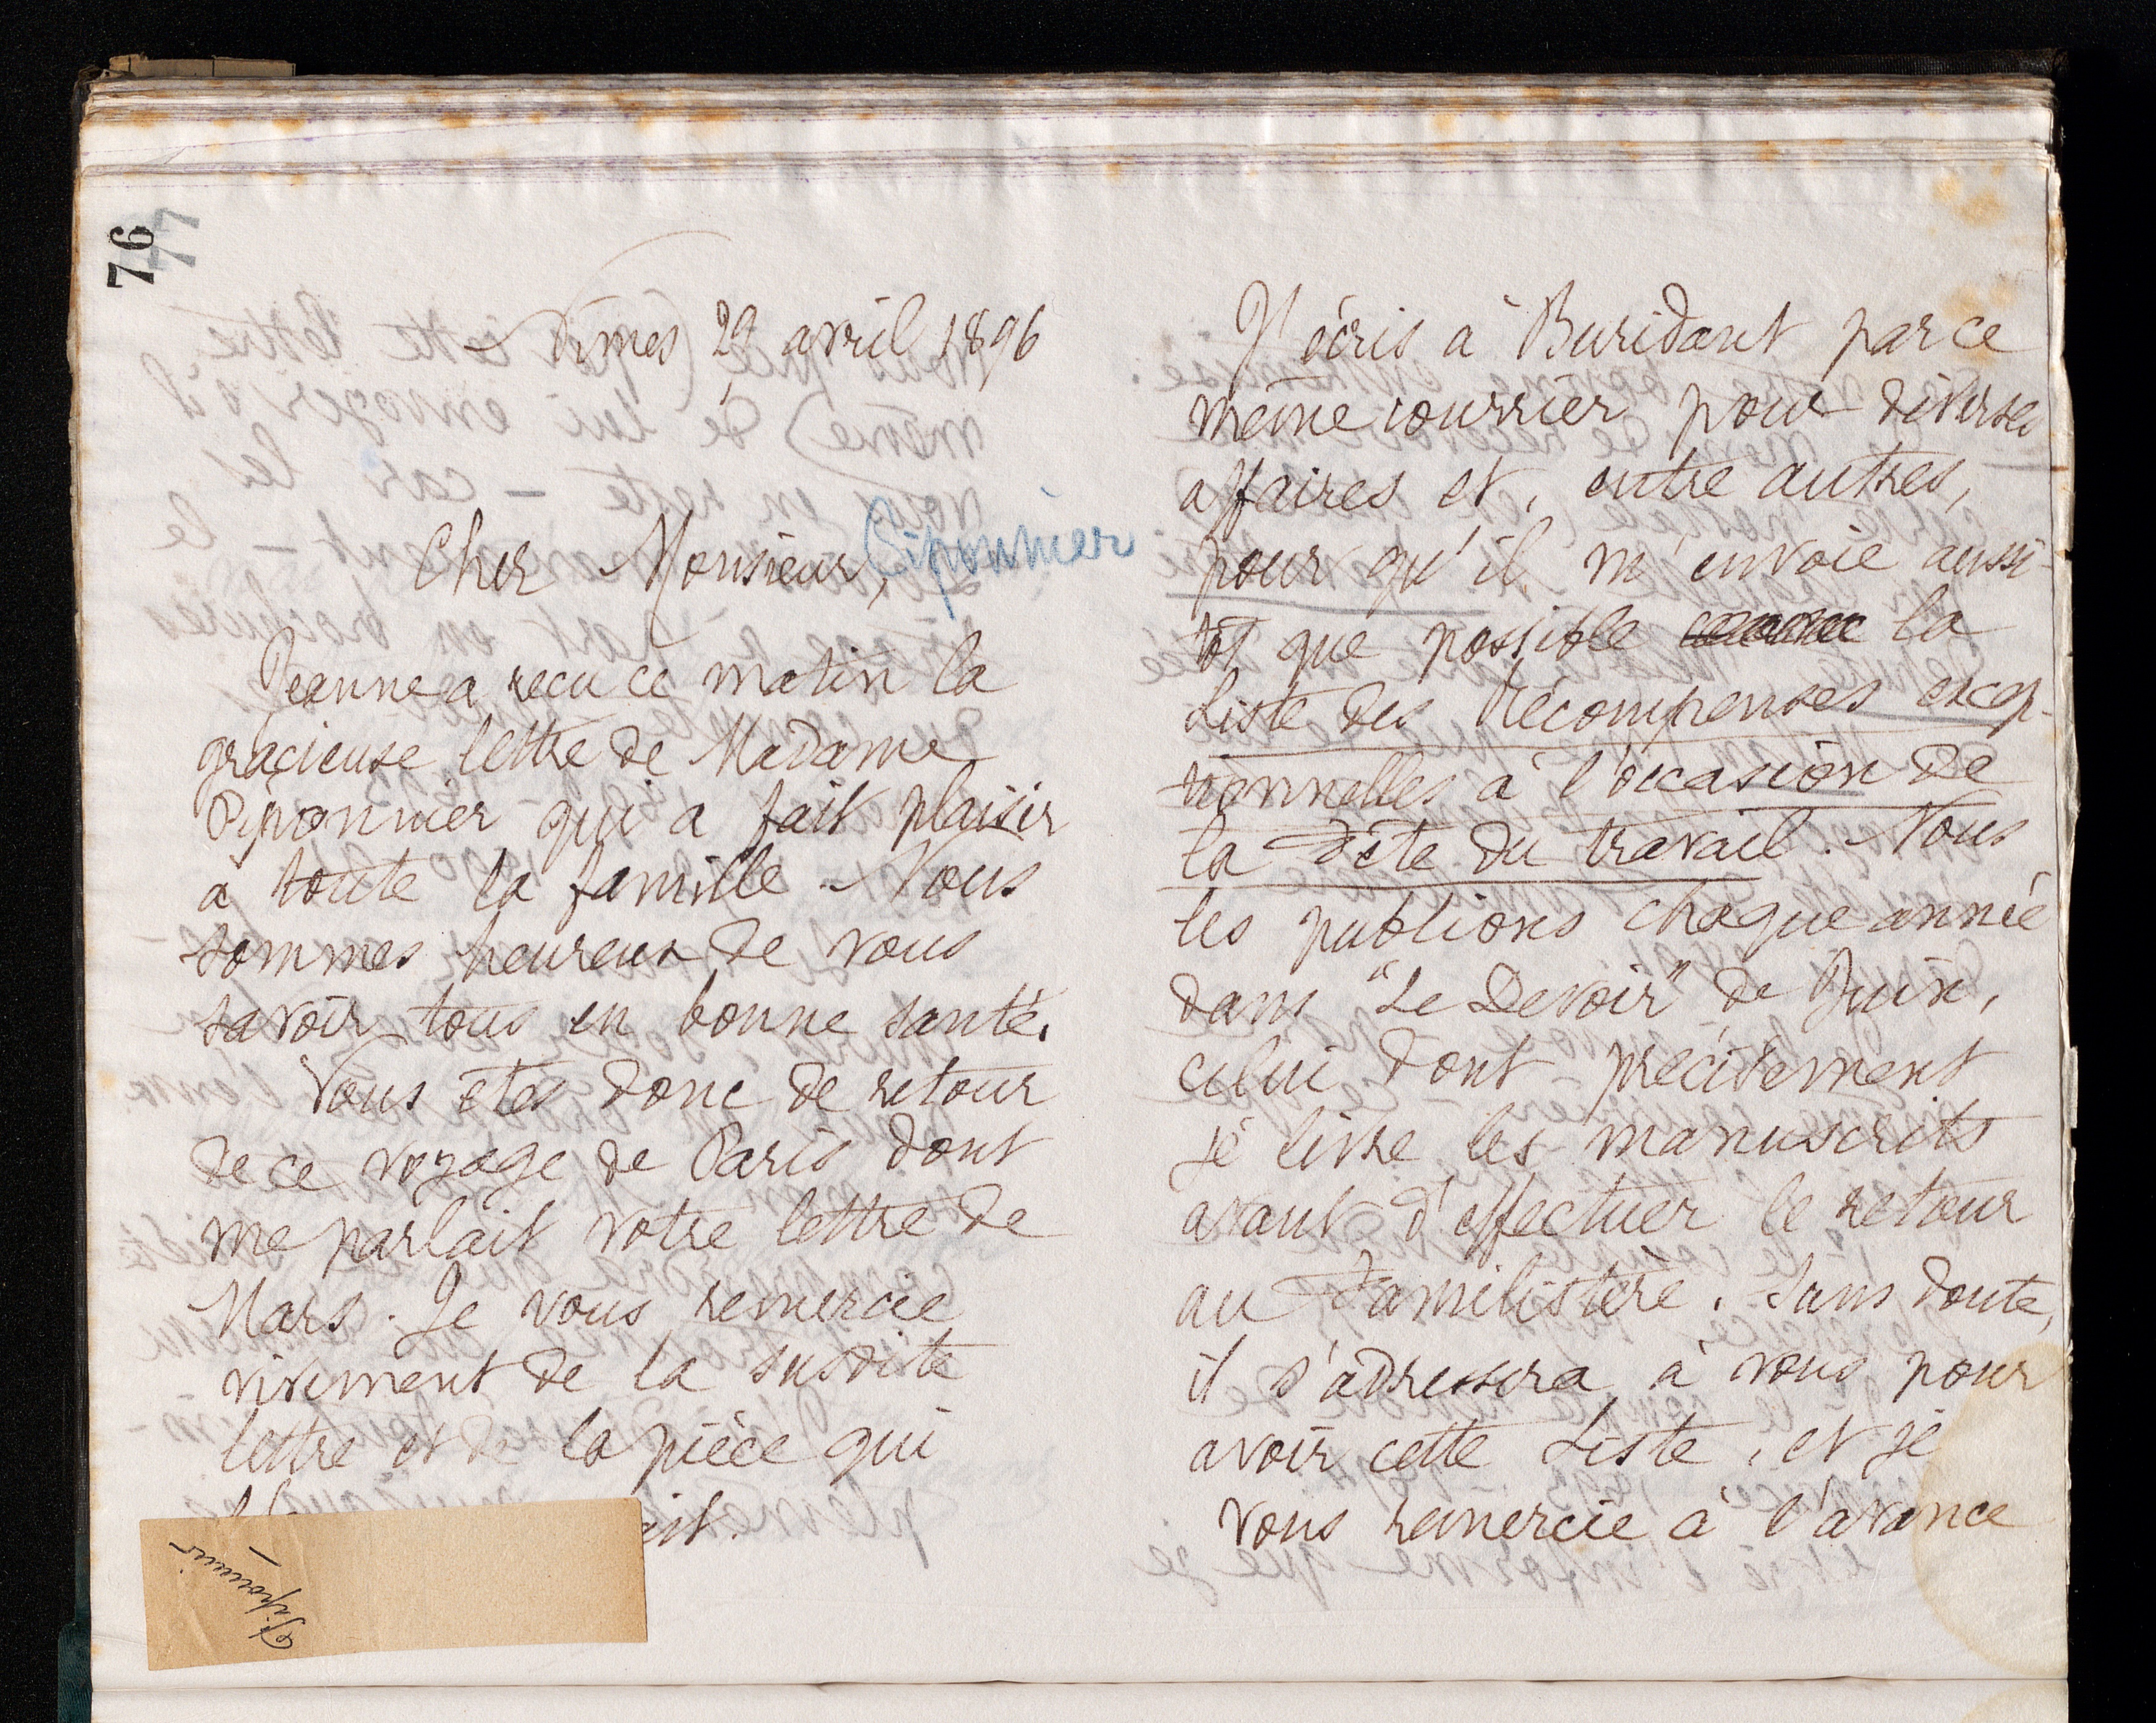 76
77
Nîmes 29 avril 1896
Cher Monsieur, Piponnier
Jeanne a reçu ce matin la
gracieuse lettre de Madame
Piponnier qui a fait plaisir
à toute la famille. Nous
sommes heureux de vous
savoir tous en bonne santé.
Vous êtes donc de retour
de ce voyage de Paris dont
me parlait votre lettre de
Mars. Je vous remercie
vivement de la susdite
lettre et de la pièce qui
Piponnier
J'écris à Buridant par ce
même courrier pour diverses
affaires et, entre autres,
pour qu'il m'envoie aussi-
tôt que possible la
Liste des Récompenses excep-
tionnelles à l'occasion de
la Fête du travail. Nous
les publions chaque année
dans "Le Devoir" de Juin,
celui dont précisément
je livre les manuscrits
avant d'effectuer le retour
au Familistère. Sans doute,
il s'adressera à vous pour
avoir cette Liste, et je
vous remercie à l'avance